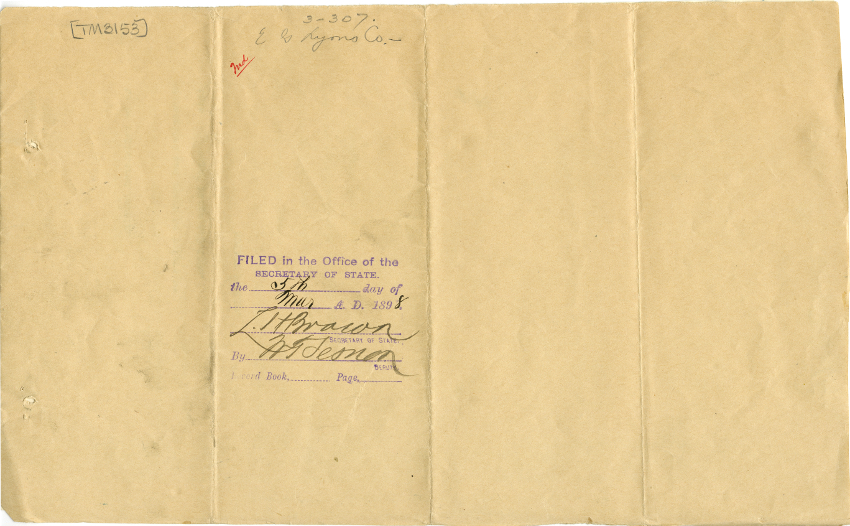 [TM3153]
3-307.
E G Lyons Co.—
FILED in the Office of the
SECRETARY OF STATE.
the 5th day of
Mar A. D. 1898.
L. H Brown
SECRETARY OF STATE.
By
DEPUTY
Book, Page,